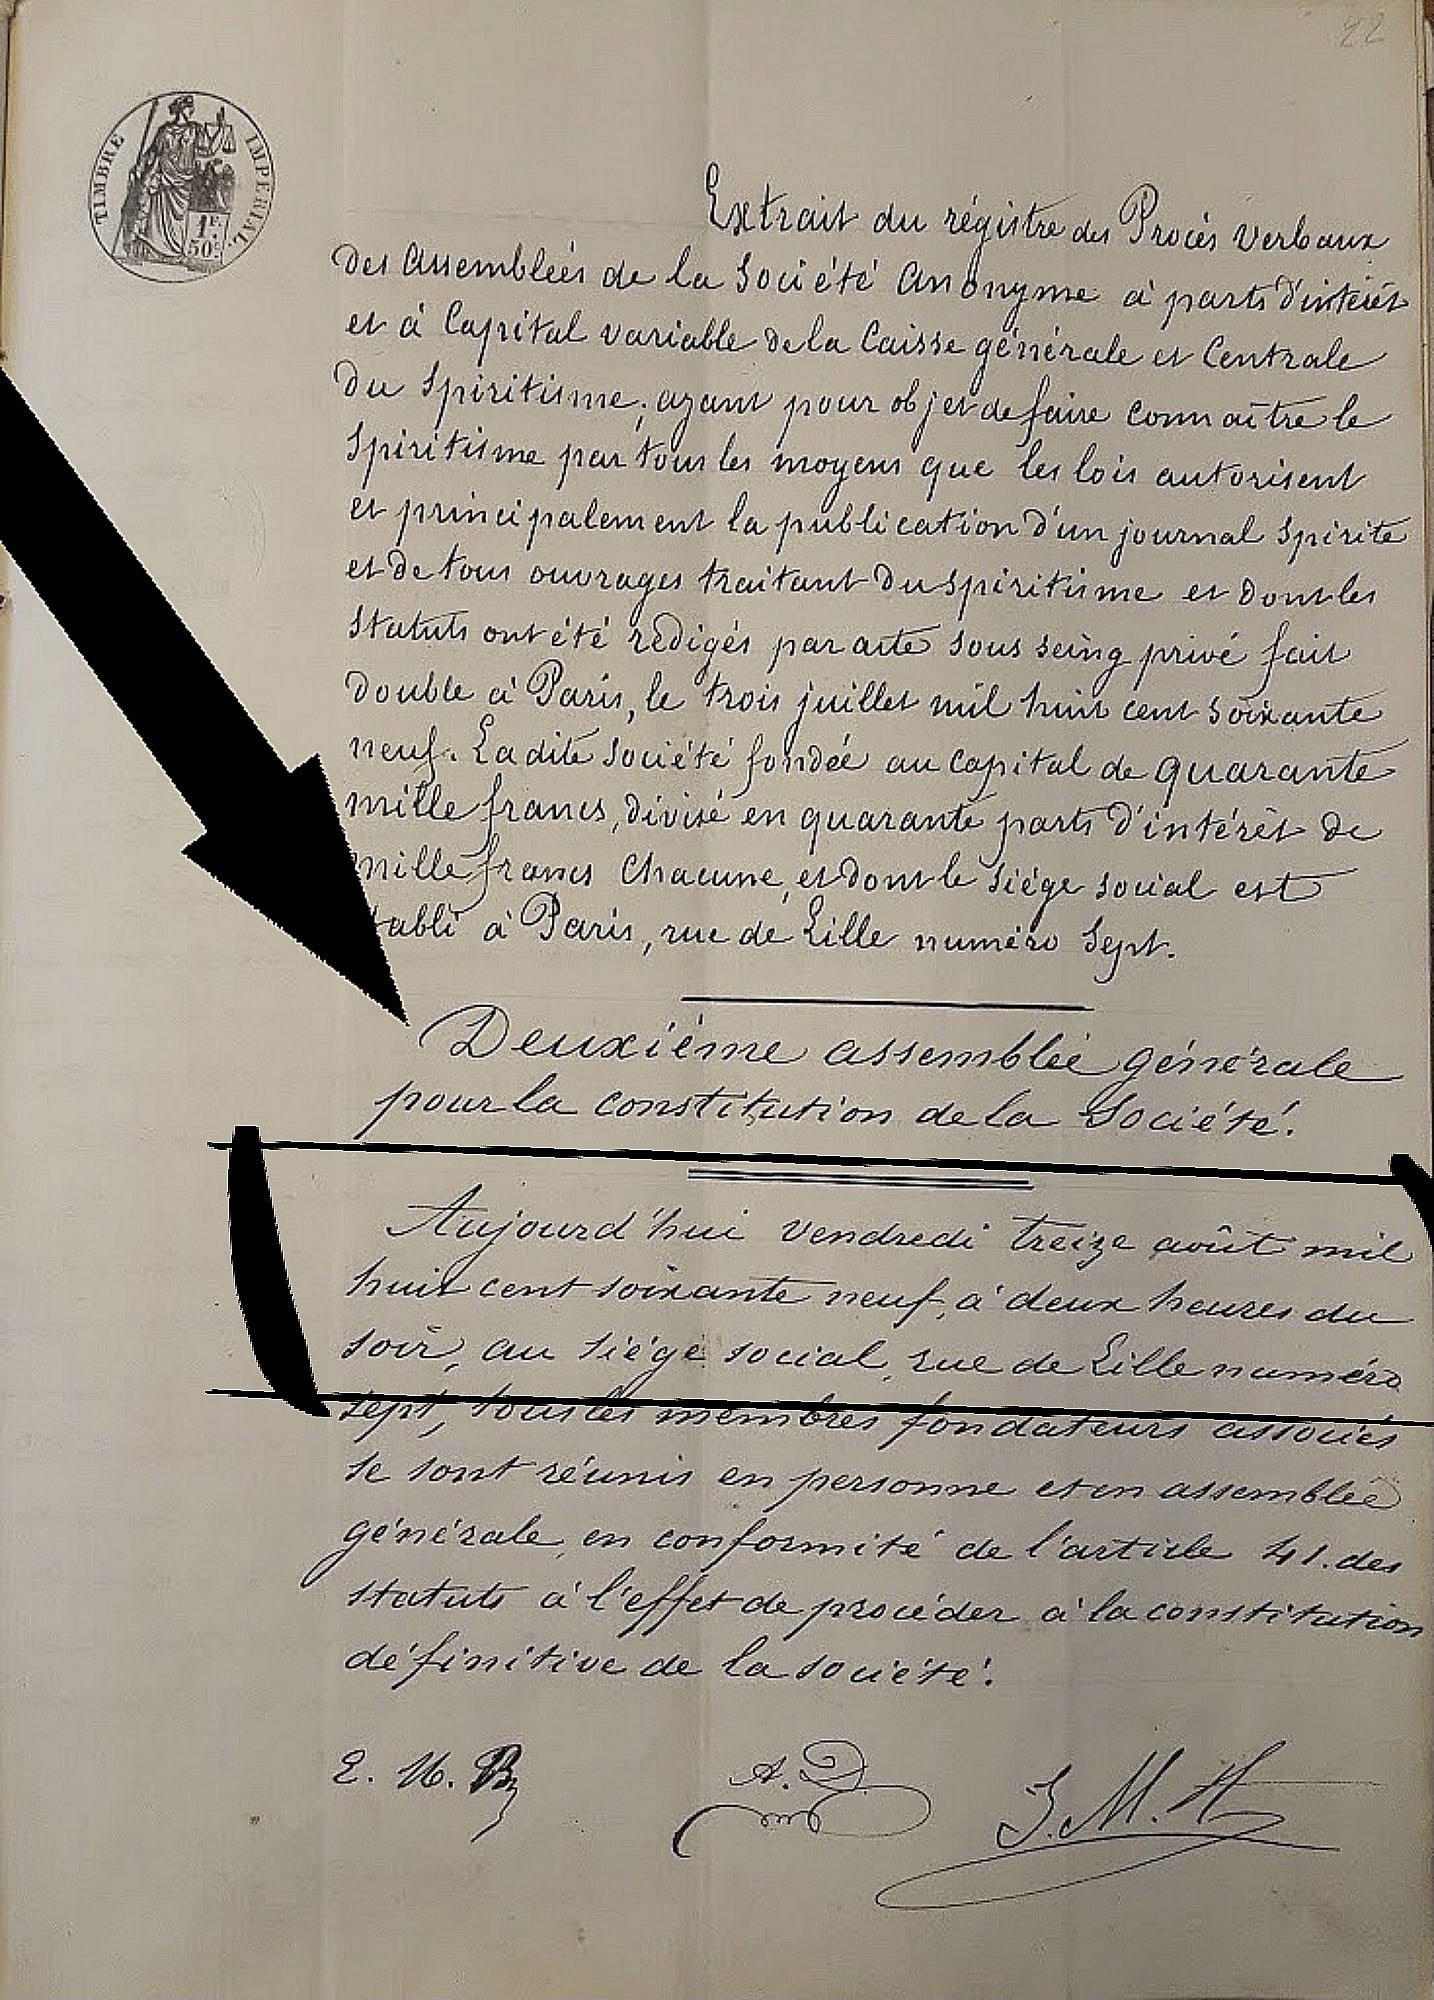 22
TIMBRE IMPERIAL
1F.
50c.
Extrait du régistre des Procès Verbaux
des Assemblées de la Société Anonyme à parts d'intérêt
et à Capital variable de la Caisse générale et Centrale
du Spiritisme, ayant pour objet de faire connaître le
Spiritisme par tous les moyens que les lois autorisent
et principalement la publication d'un journal Spirite
et de tous ouvrages traitant du Spiritisme et dont les
Statuts ont été rédigés par acte sous seing privé fait
double à Paris, le trois juillet mil huit cent soixante
neuf. La dite Société fondée au capital de quarante
mille francs, divisé en quarante parts d'intérêt de
mille francs Chacune, et dont le Siège social est
établi à Paris, rue de Lille numéro Sept.
Deuxième assemblée générale
pour la constitution de la Société.
Aujourd'hui vendredi treize août mil
huit cent soixante neuf, à deux heures du
soir, au siège social, rue de Lille numéro
sept, tous les membres fondateurs associés
se sont réunis en personne et en assemblée
générale, en conformité de l'article 41. des
statuts à l'effet de procéder à la constitution
définitive de la société.
E. M. B A. D. J. M. H